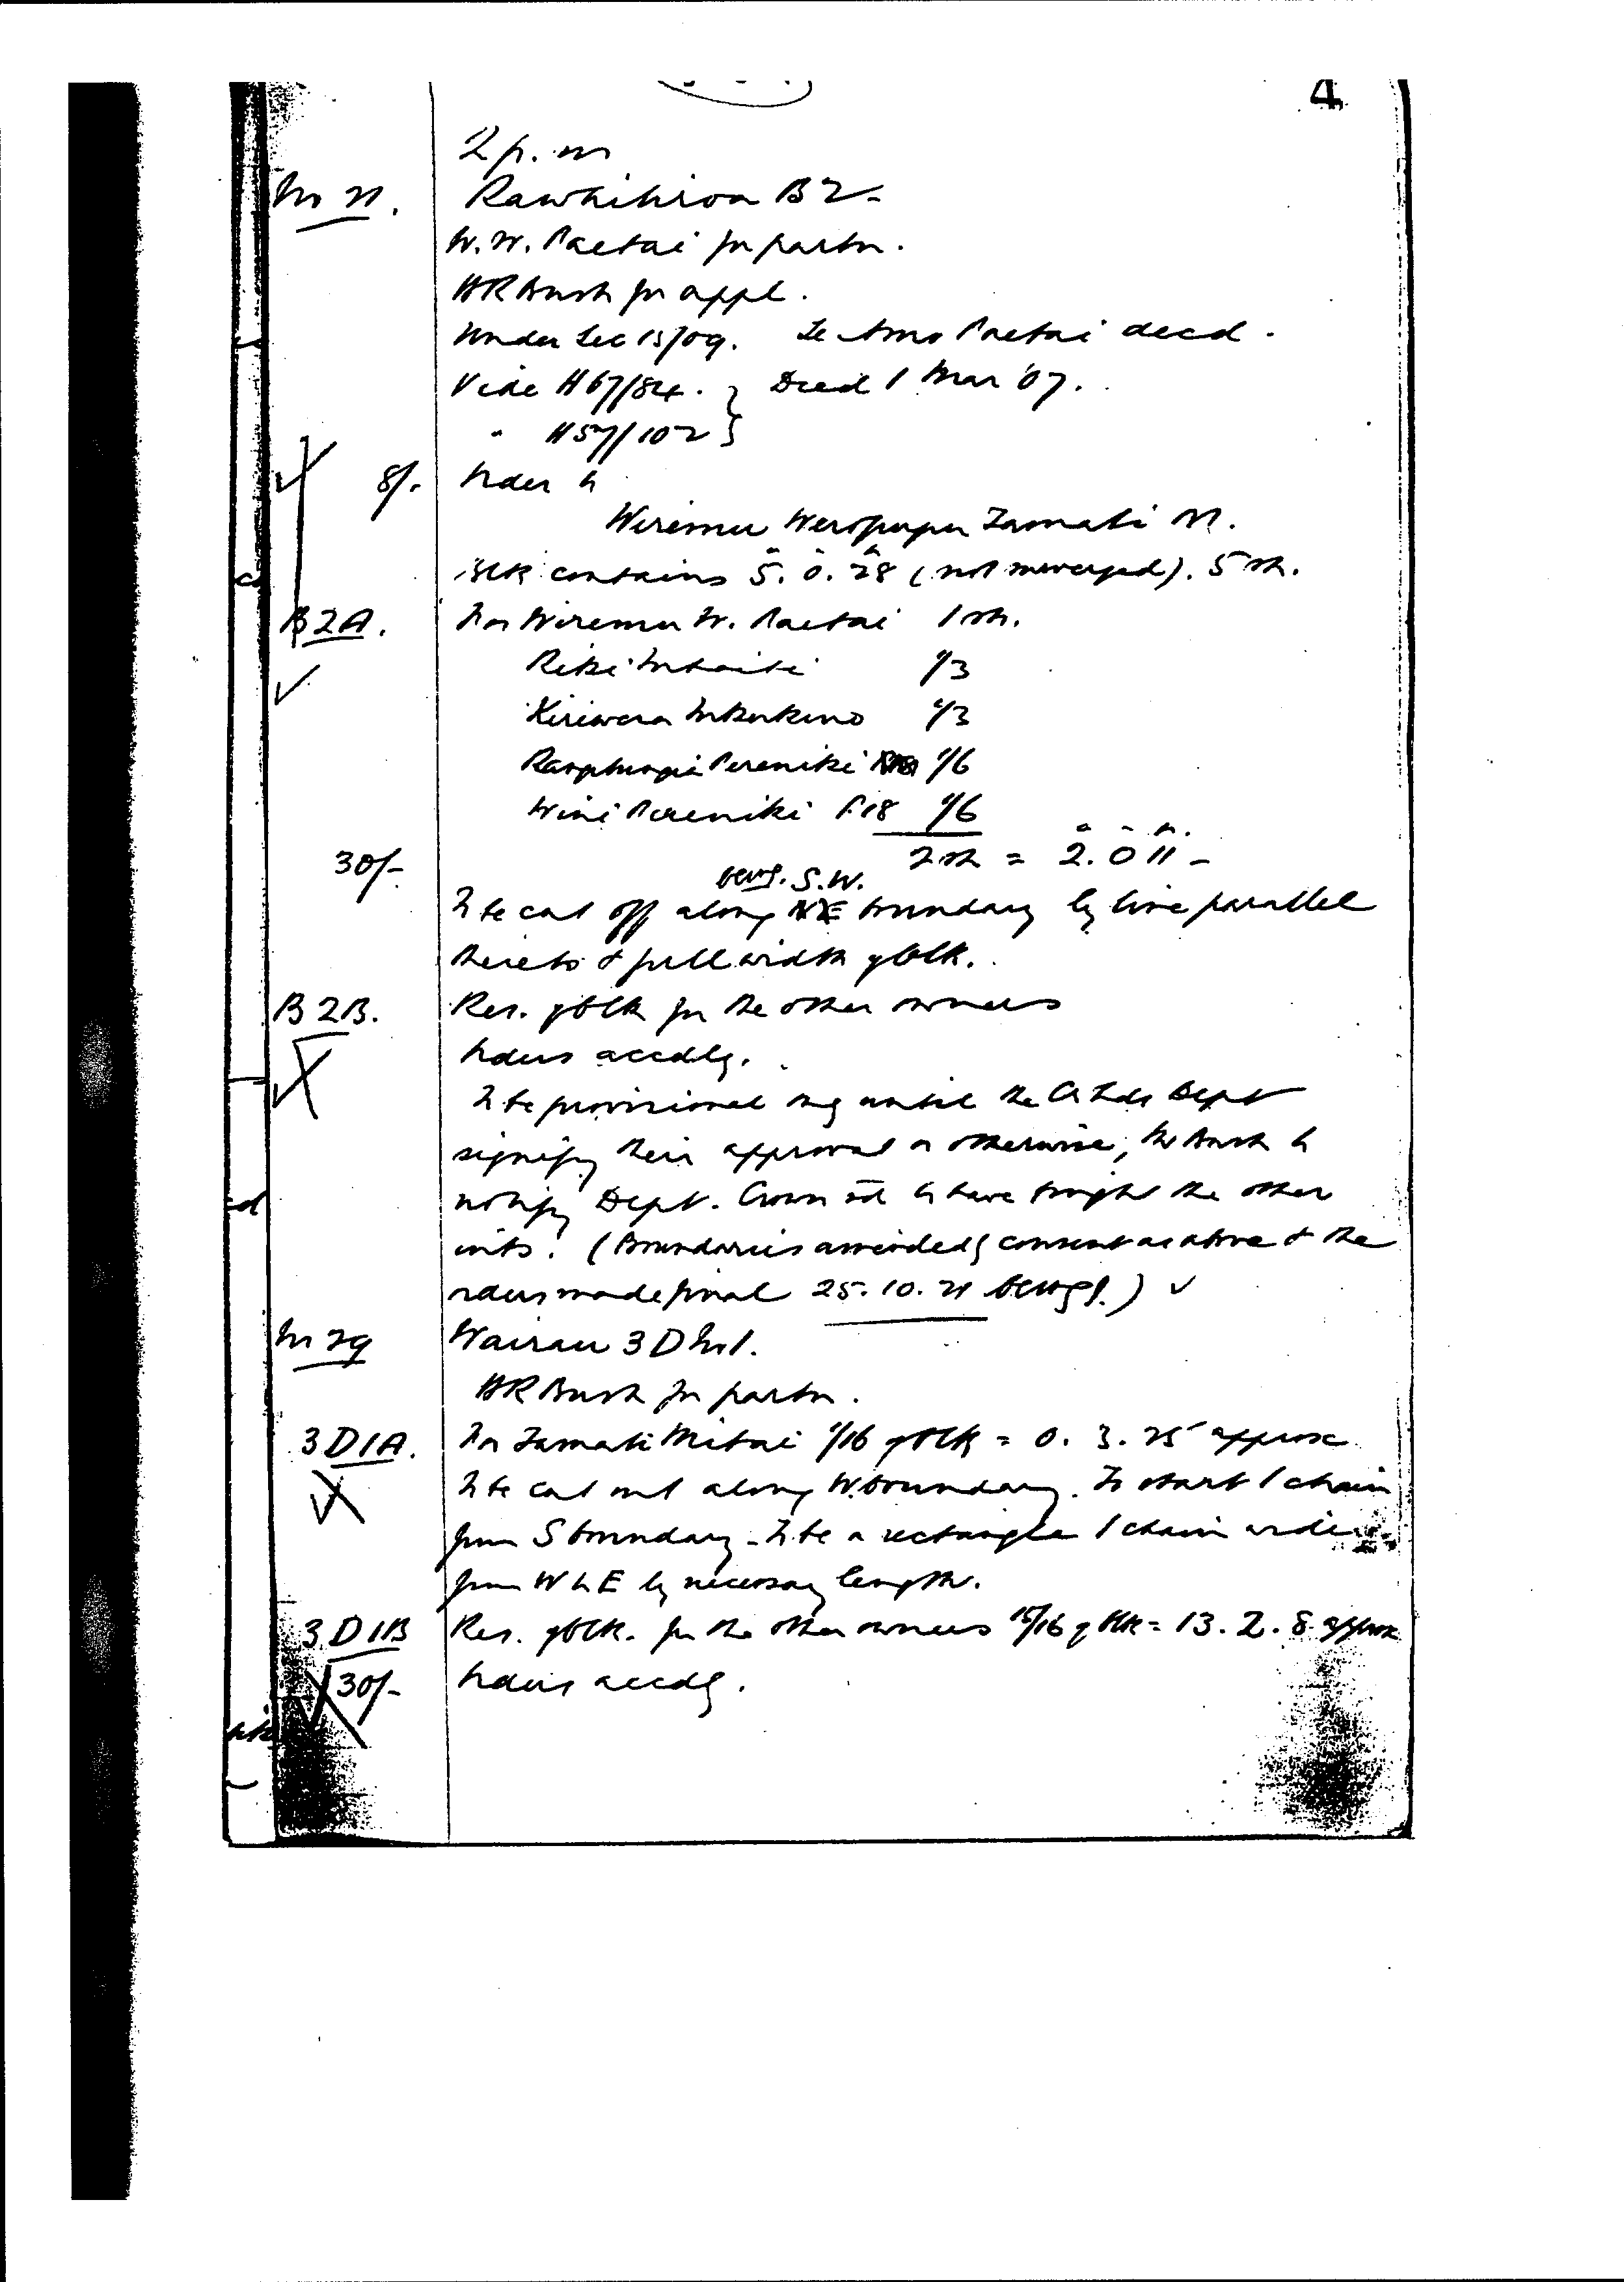 4
2 p.m
No 21. Rawhihiroa B2.
W.W. Paetai for partn.
HR Bush for appl.
Under Sec 13/09. Te Amo Paetai decd.
Vide H67/84. } Died 1 Mar '07.
" H57/102 }
8/. Order to
Wiremu Weropupu Tamati M.
Blk contains 5. 0. 28 (not surveyed). 5 sh.
B2A. For Wiremu W. Paetai 1 sh.
1/3
1/3
Pereniki 1/6
Wini Pereniki F18 1/6
30/- 2 sh = 2. 0 11 -
S.W.
To be cut off along NE boundary by line parallel
thereto & full width of blk.
B2B. Res. of blk for the other owners
Orders accdly.
To be provisional only until the Dept
signify their approval or otherwise, Mr Bush to
notify Dept. Crown sd to have bought the other
ints. (Boundaries amended by consent as above & the
orders made final 25. 10. 21)
No 29 Wairau 3D No 1.
HR Bush for partn.
3D1A. For Tamati Mitai 1/16 of blk = 0. 3. 25 approx
To be cut out along W. boundary. To start 1 chain
from S boundary - To be a rectangle 1 chain wide
from W to E by necessary length.
3D1B Res. of blk. for the other owners 15/16 of blk = 13. 2. 8 approx
30/- Orders accdly.